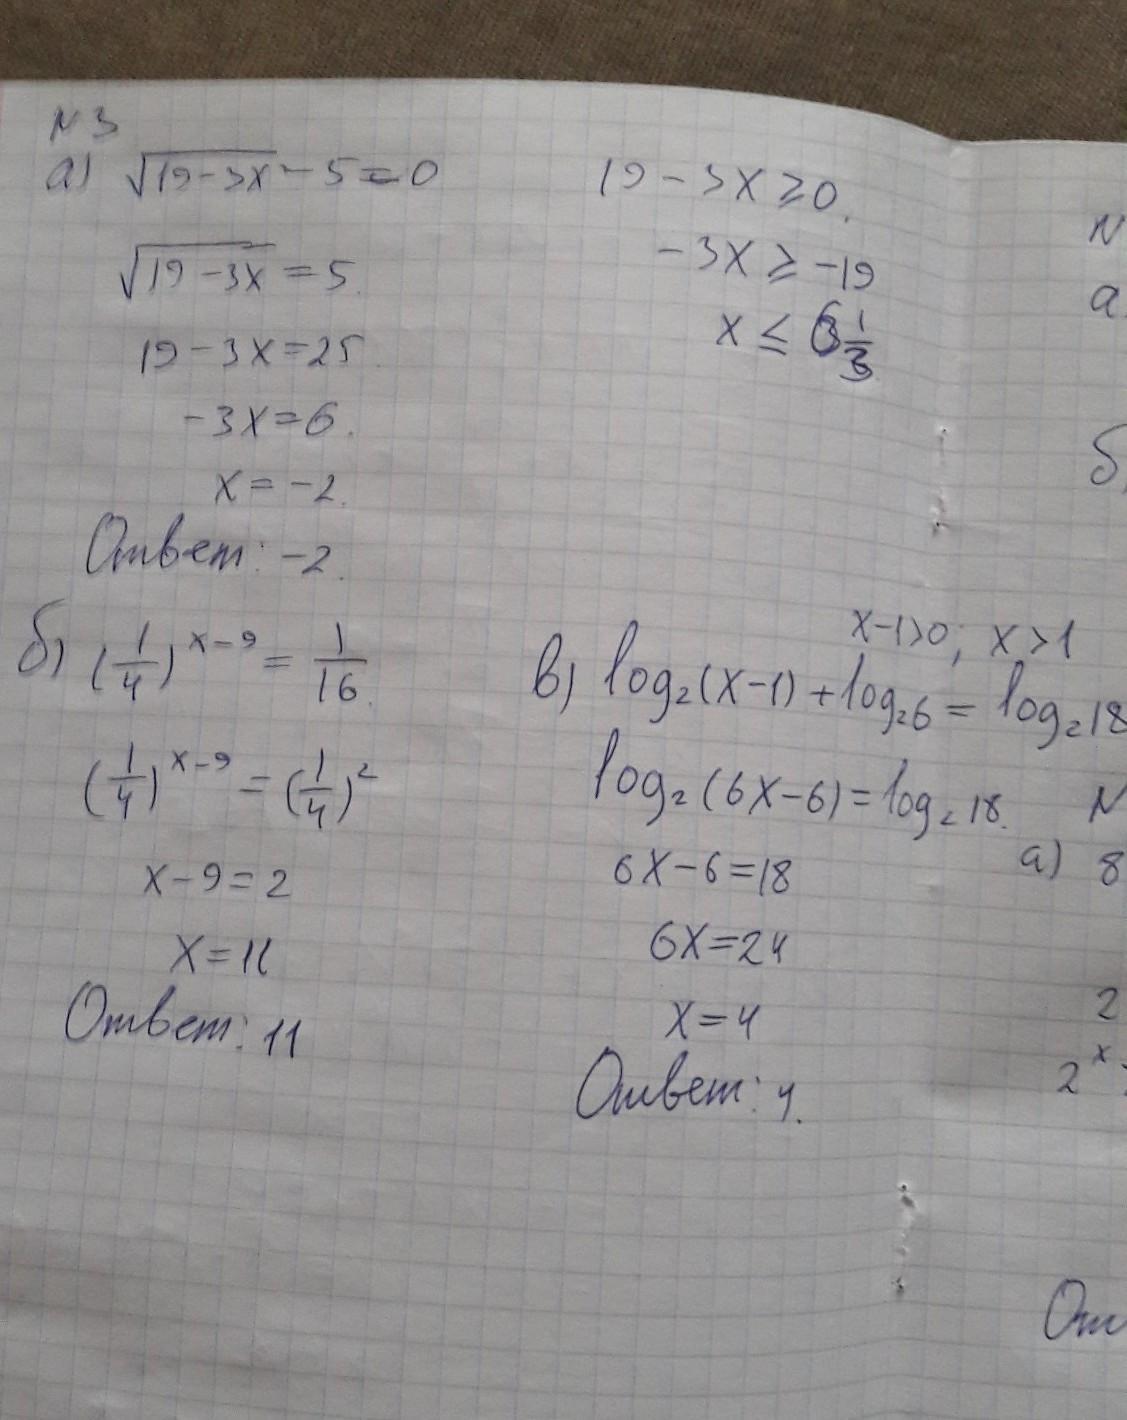 N 3
а) √(19-3x) - 5 = 0
√(19-3x) = 5.
19-3x=25.
-3x=6.
x=-2.
Ответ: -2.
19-3x≥0.
-3x≥-19
x≤6 1/3
б) (1/4)^(x-9) = 1/16.
(1/4)^(x-9) = (1/4)^2
x-9=2
x=11
Ответ: 11
x-1>0; x>1
в) log₂(x-1)+log₂6 = log₂18
log₂(6x-6)=log₂18.
6x-6=18
6x=24
x=4
Ответ: 4.
N
а
б)
N
а) 8
2
2^x
От